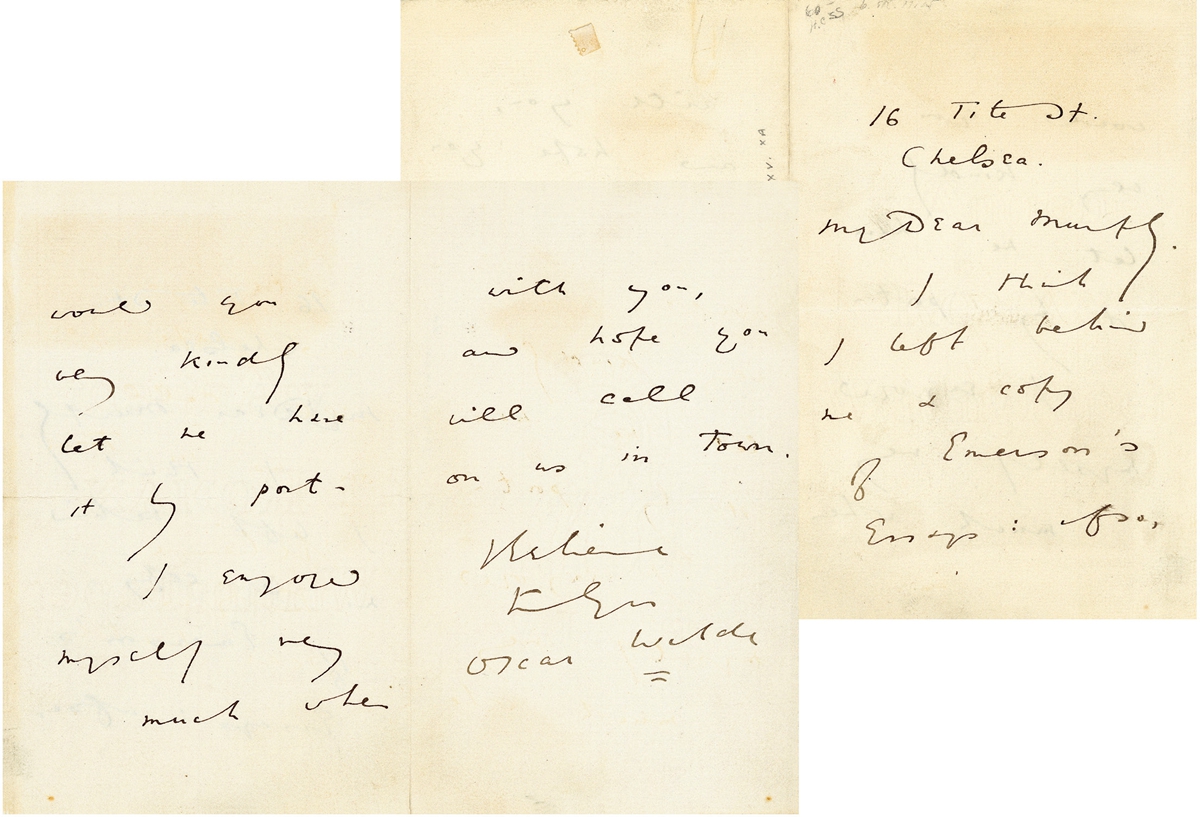 16 Tite St.
Chelsea.
My Dear Murphy.
I think
I left behind
me a copy
of Emerson's
Essays : if so,
would you
very kindly
let me have
it by post -
I enjoyed
myself very
much when
with you,
and hope you
will call
on us in Town.
Believe
Oscar Wilde
XV. XA